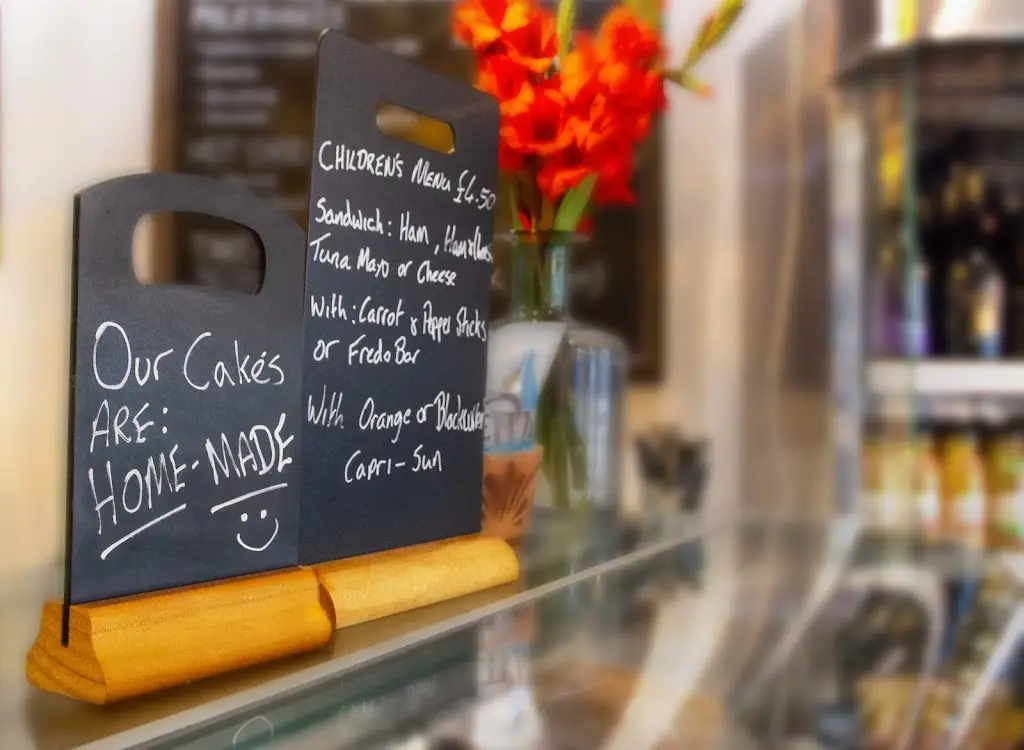 Our Cakes
ARE:
HOME-MADE
CHILDREN'S MENU £4.50
Sandwich: Ham,
Tuna Mayo or Cheese
With: Carrot & Pepper Sticks
or Fredo Bar
With Orange or
Capri-Sun